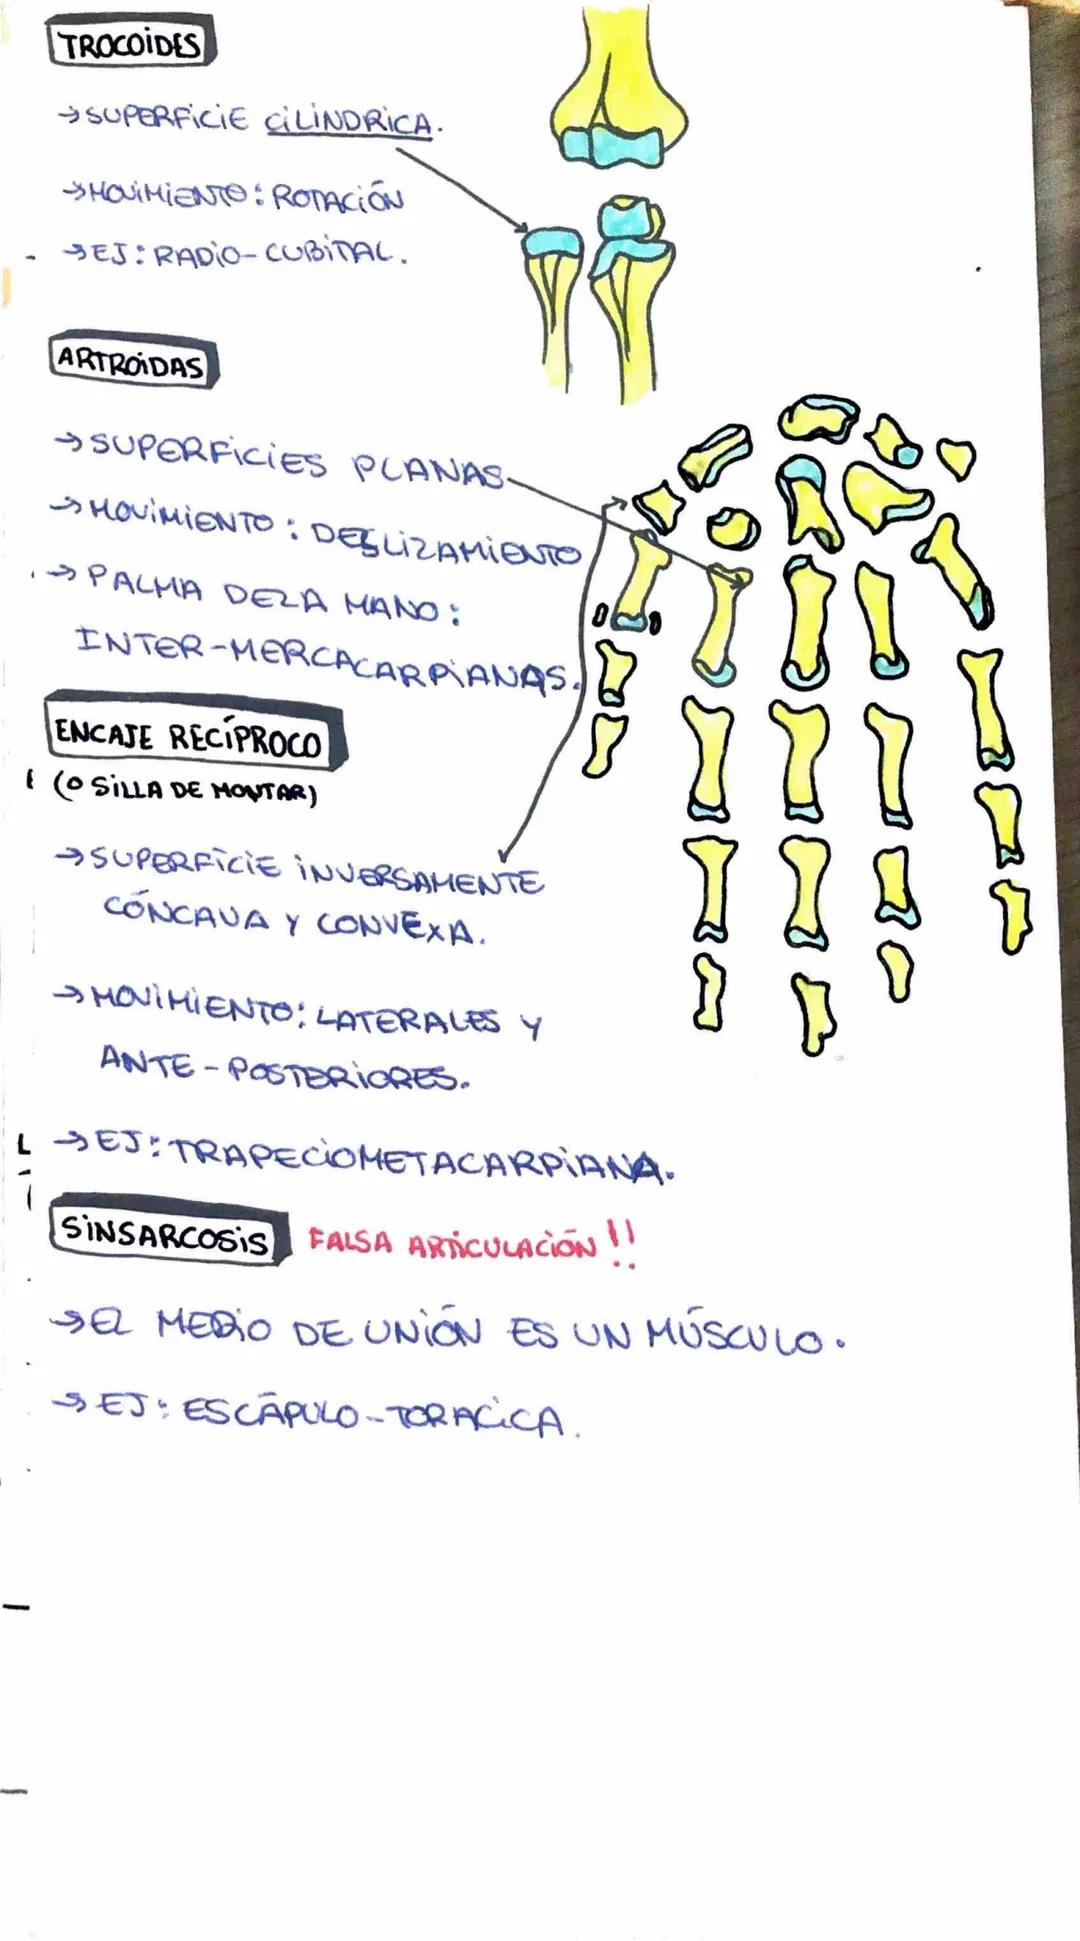 TROCOIDES
→SUPERFICIE CILINDRICA.
→MOVIMIENTO: ROTACIÓN
→EJ: RADIO-CUBITAL.
ARTROIDAS
→SUPERFICIES PLANAS
→MOVIMIENTO: DESLIZAMIENTO
→PALMA DE LA MANO:
INTER-MERCACARPIANAS.
ENCAJE RECÍPROCO
(O SILLA DE MONTAR)
→SUPERFICIE INVERSAMENTE
CÓNCAVA Y CONVEXA.
→MOVIMIENTO: LATERALES Y
ANTE-POSTERIORES.
→EJ: TRAPECIOMETACARPIANA.
SINSARCOSIS FALSA ARTICULACIÓN!!
→EL MEDIO DE UNIÓN ES UN MÚSCULO.
→EJ: ESCÁPULO-TORACICA.